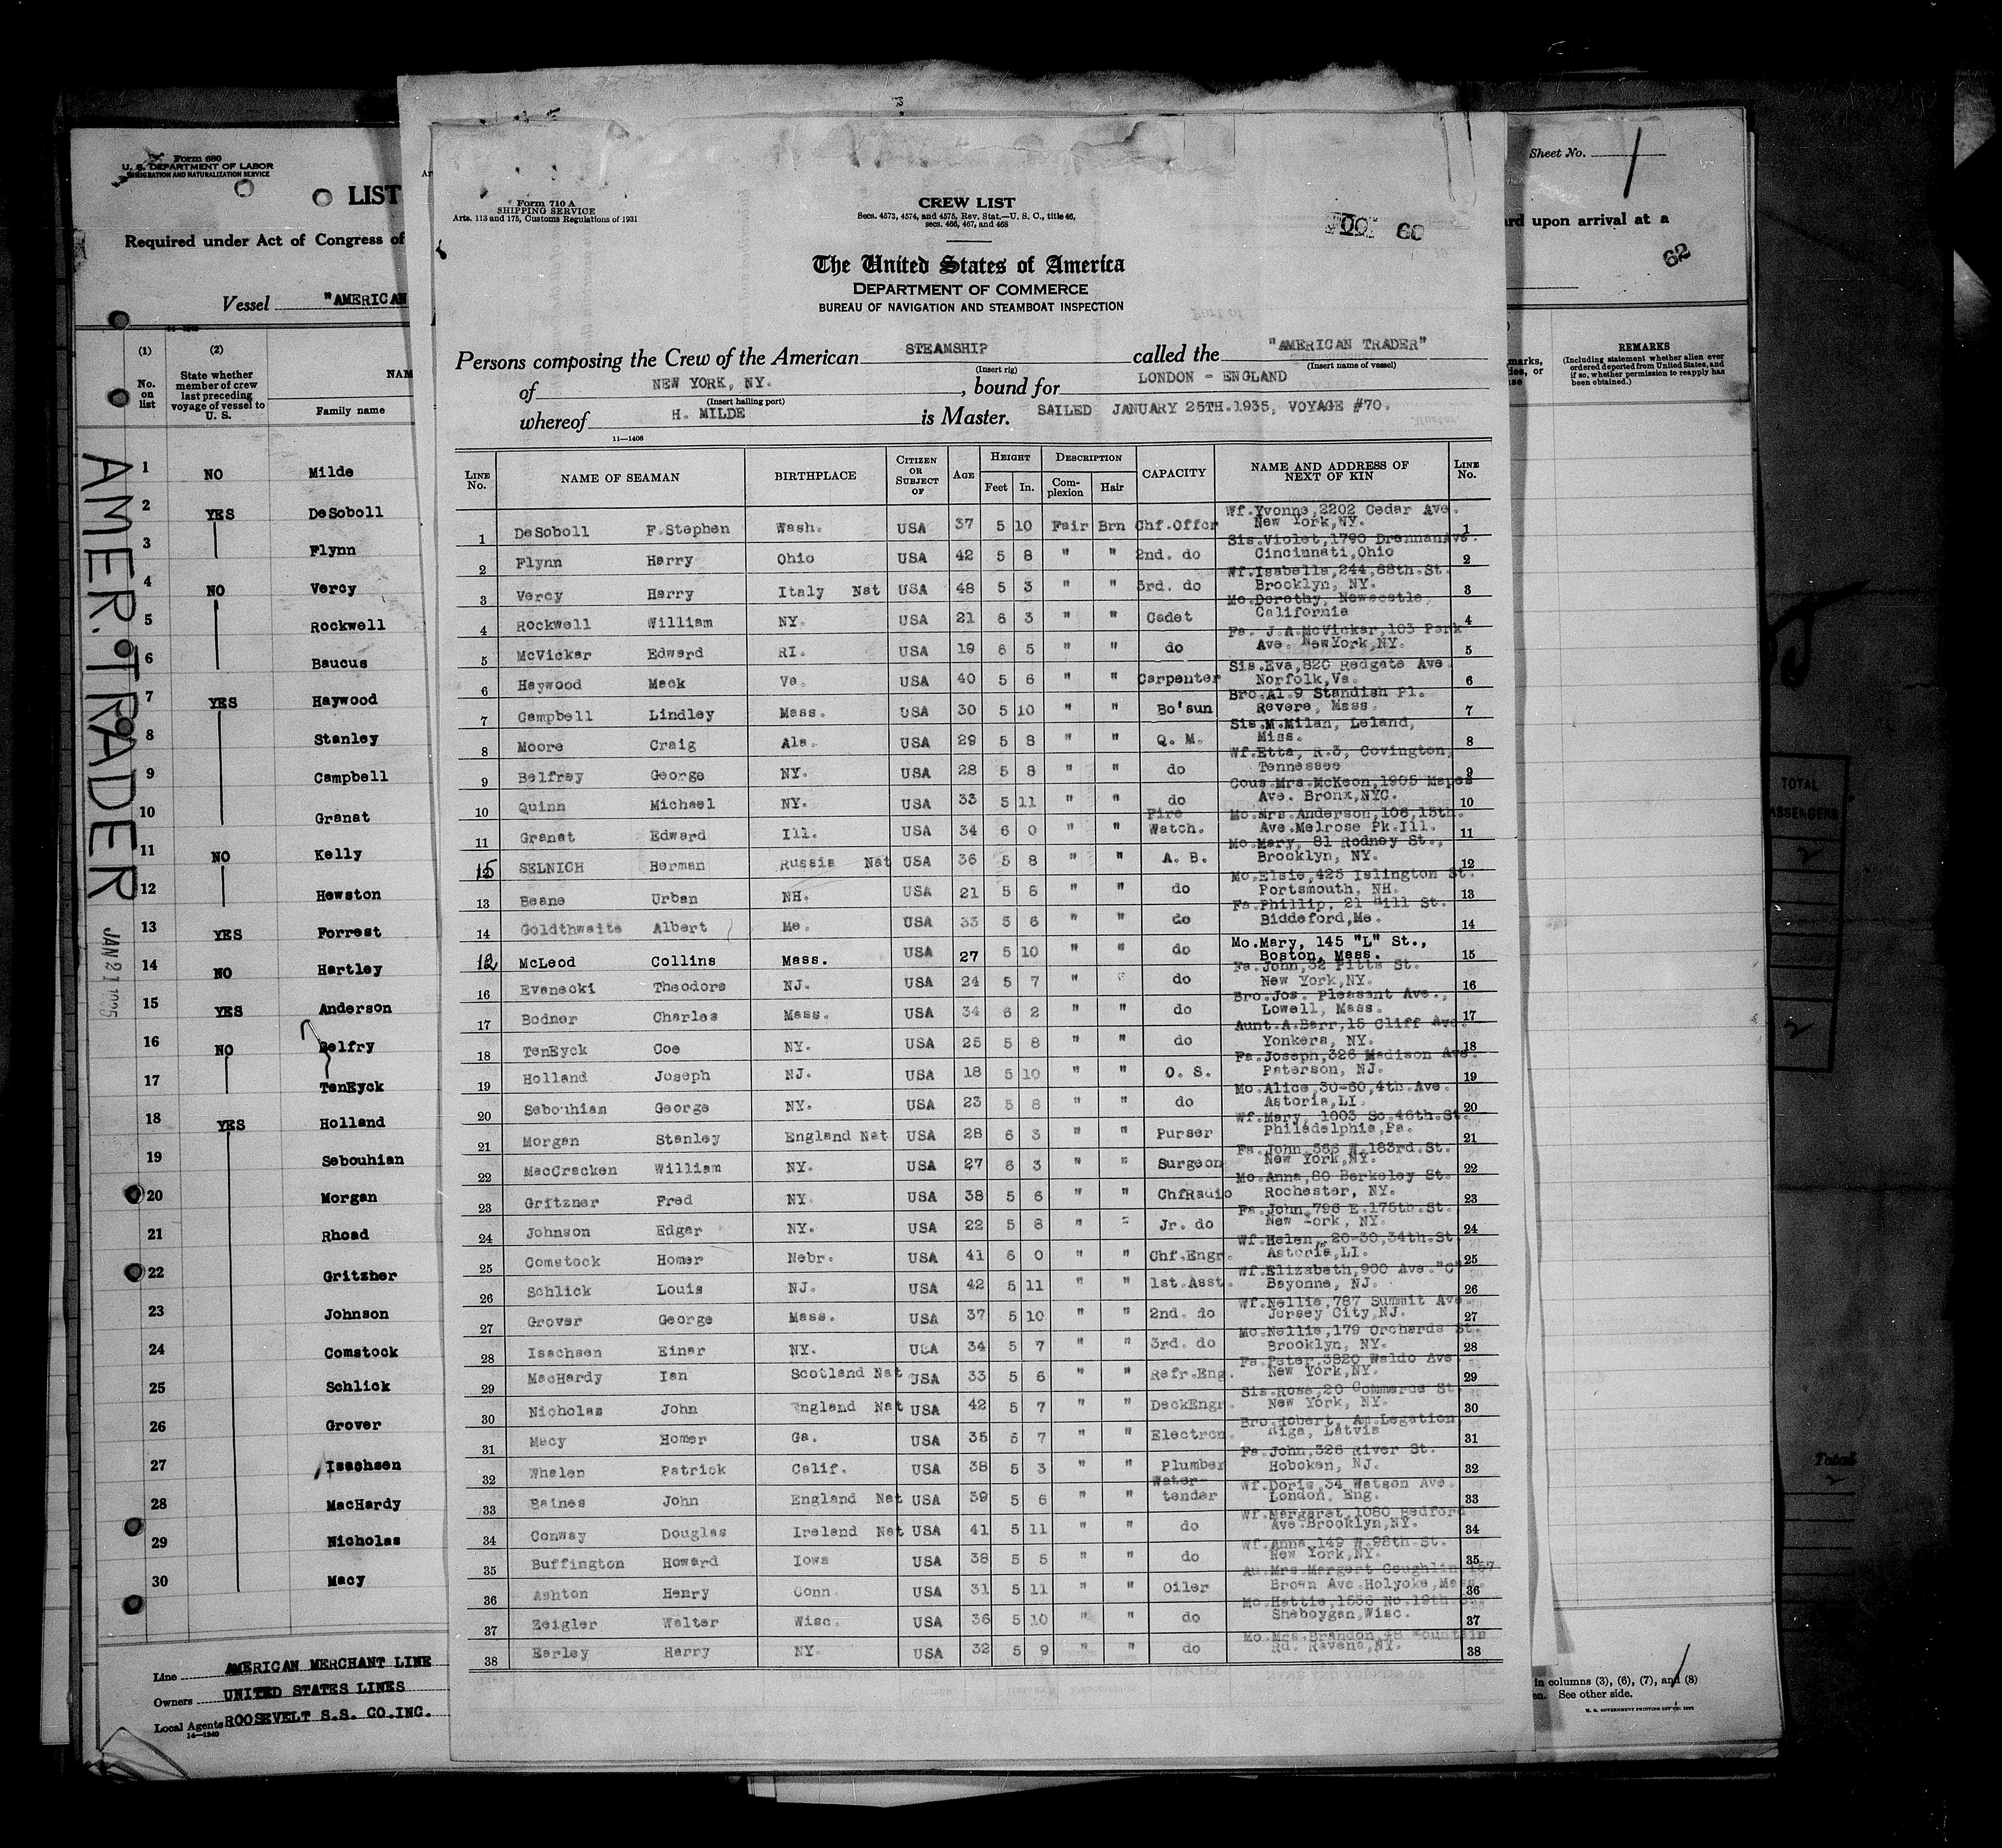 Form 680
U. S. DEPARTMENT OF LABOR
IMMIGRATION AND NATURALIZATION SERVICE
LIST
Required under Act of Congress of
Vessel "AMERICAN
(1) (2)
No. on list
State whether member of crew last preceding voyage of vessel to U. S.
NAM
Family name
1 NO Milde
2 YES DeSoboll
3 Flynn
4 NO Vercy
5 Rockwell
6 Baucus
7 YES Haywood
8 Stanley
9 Campbell
10 Granat
11 NO Kelly
12 Hewston
13 YES Forrest
14 NO Hartley
15 YES Anderson
16 NO Belfry
17 TenEyck
18 YES Holland
19 Sebouhian
20 Morgan
21 Rhoad
22 Gritzher
23 Johnson
24 Comstock
25 Schlick
26 Grover
27 Isachsen
28 MacHardy
29 Nicholas
30 Macy
Line AMERICAN MERCHANT LINE
Owners UNITED STATES LINES
Local Agents ROOSEVELT S.S. CO.INC.
14—1240
AMER. TRADER
JAN 21 1935
Form 710 A
SHIPPING SERVICE
Arts. 113 and 175, Customs Regulations of 1931
CREW LIST
Secs. 4573, 4574, and 4575, Rev. Stat.—U. S. C., title 46,
secs. 465, 467, and 468
60
The United States of America
DEPARTMENT OF COMMERCE
BUREAU OF NAVIGATION AND STEAMBOAT INSPECTION
Persons composing the Crew of the American STEAMSHIP called the "AMERICAN TRADER"
(Insert rig) (Insert name of vessel)
of NEW YORK, NY. , bound for LONDON - ENGLAND
(Insert hailing port)
whereof H. MILDE is Master. SAILED JANUARY 25TH.1935, VOYAGE #70.
11—1408
LINE No. NAME OF SEAMAN BIRTHPLACE CITIZEN OR SUBJECT OF AGE HEIGHT Feet In. DESCRIPTION Complexion Hair CAPACITY NAME AND ADDRESS OF NEXT OF KIN LINE No.
1 DeSoboll F.Stephen Wash. USA 37 5 10 Fair Brn Chf.Offcr Wf.Yvonne,2202 Cedar Ave. New York,NY. 1
2 Flynn Harry Ohio USA 42 5 8 " " 2nd. do Sis.Violet,1790 DrennanAve. Cincinnati,Ohio 2
3 Vercy Harry Italy Nat USA 48 5 3 " " 3rd. do Wf.Isabella,244,88th.St. Brooklyn, NY. 3
4 Rockwell William NY. USA 21 6 3 " " Cadet Mo.Dorothy, Newcastle, California 4
5 McVickar Edward RI. USA 19 6 5 " " do Fa. J.A.McVickar,103 Park Ave. NewYork,NY. 5
6 Haywood Mack Va. USA 40 5 6 " " Carpenter Sis.Eva,820 Redgate Ave. Norfolk,Va. 6
7 Campbell Lindley Mass. USA 30 5 10 " " Bo'sun Bro.Al.9 Standish Pl. Revere, Mass. 7
8 Moore Craig Ala. USA 29 5 8 " " Q. M. Sis.M.Milan, Leland, Miss. 8
9 Belfrey George NY. USA 28 5 8 " " do Wf.Etta, R.3, Covington, Tennessee 9
10 Quinn Michael NY. USA 33 5 11 " " do Cous.Mrs.McKeon,1905 Mapes Ave. Bronx,NYC. 10
11 Granat Edward Ill. USA 34 6 0 " " Fire Watch. Mo.Mrs.Anderson,106,15th. Ave.Melrose Pk.Ill. 11
15 SELNICH Herman Russia Nat USA 36 5 8 " " A. B. Mo.Mary, 81 Rodney St., Brooklyn, NY. 12
13 Beane Urban NH. USA 21 5 8 " " do Mo.Elsie,425 Islington St. Portsmouth, NH. 13
14 Goldthwaite Albert Me. USA 33 5 6 " " do Fa.Phillip, 21 Hill St. Biddeford,Me. 14
12 McLeod Collins Mass. USA 27 5 10 " " do Mo.Mary, 145 "L" St., Boston, Mass. 15
16 Evanecki Theodore NJ. USA 24 5 7 " " do Fa.John,32 Pitts St. New York,NY. 16
17 Bodner Charles Mass. USA 34 6 2 " " do Bro.Jos. Pleasant Ave., Lowell, Mass. 17
18 TenEyck Coe NY. USA 25 5 8 " " do Aunt.A.Barr,15 Cliff Ave. Yonkers, NY. 18
19 Holland Joseph NJ. USA 18 5 10 " " O. S. Fa.Joseph,326 Madison Ave. Paterson, NJ. 19
20 Sebouhian George NY. USA 23 5 8 " " do Mo.Alice,30-60,4th.Ave. Astoria,LI. 20
21 Morgan Stanley England Nat USA 28 6 3 " " Purser Wf.Mary, 1003 So.46th.St. Philadelphia,Pa. 21
22 MacCracken William NY. USA 27 6 3 " " Surgeon Fa.John,566 W.183rd.St. New York,NY. 22
23 Gritzner Fred NY. USA 38 5 6 " " ChfRadio Mo.Anna,80 Berkeley St. Rochester, NY. 23
24 Johnson Edgar NY. USA 22 5 8 " " Jr. do Fa.John,796 E.175th.St. New York, NY. 24
25 Comstock Homer Nebr. USA 41 6 0 " " Chf.Engr. Wf.Helen, 20-30,34th.St. Astoria,LI. 25
26 Schlick Louis NJ. USA 42 5 11 " " 1st.Asst. Wf.Elizabeth,900 Ave."C" Bayonne, NJ. 26
27 Grover George Mass. USA 37 5 10 " " 2nd. do Wf.Nellie,787 Summit Ave. Jersey City,NJ. 27
28 Isachsen Einar NY. USA 34 5 7 " " 3rd. do Mo.Nellie,179 Orchards St. Brooklyn, NY. 28
29 MacHardy Ian Scotland Nat USA 33 5 6 " " Refr.Eng. Fa.Peter,3820 Waldo Ave. New York,NY. 29
30 Nicholas John England Nat USA 42 5 7 " " DeckEngr. Sis.Rose,20 Commerce St. New York, NY. 30
31 Macy Homer Ga. USA 35 5 7 " " Electron. Bro.Robert, Am.Legation, Riga, Latvia 31
32 Whalen Patrick Calif. USA 38 5 3 " " Plumber Fa.John,326 River St. Hoboken, NJ. 32
33 Baines John England Nat USA 39 5 6 " " Water- tender Wf.Doris,34 Watson Ave. London, Eng. 33
34 Conway Douglas Ireland Nat USA 41 5 11 " " do Wf.Margaret,1080 Bedford Ave.Brooklyn,NY. 34
35 Buffington Howard Iowa USA 38 5 5 " " do Wf.Anna,149 W.98th.St. New York,NY. 35
36 Ashton Henry Conn. USA 31 5 11 " " Oiler Au.Mrs.Margert Coughlin,157 Brown Ave.Holyoke,Mass. 36
37 Zeigler Walter Wisc. USA 36 5 10 " " do Mo.Hattie,1636 No.19th. Sheboygan,Wisc. 37
38 Earley Harry NY. USA 32 5 9 " " do Mo.Mrs.Brandon,48 Mountain Rd. Ravena,NY. 38
Sheet No. 1
rd upon arrival at a
62
REMARKS
(Including statement whether alien ever ordered deported from United States, and if so, whether permission to reapply has been obtained.)
in columns (3), (6), (7), and (8)
en. See other side.
U. S. GOVERNMENT PRINTING OFFICE
TOTAL
PASSENGERS
2
2
Total
2